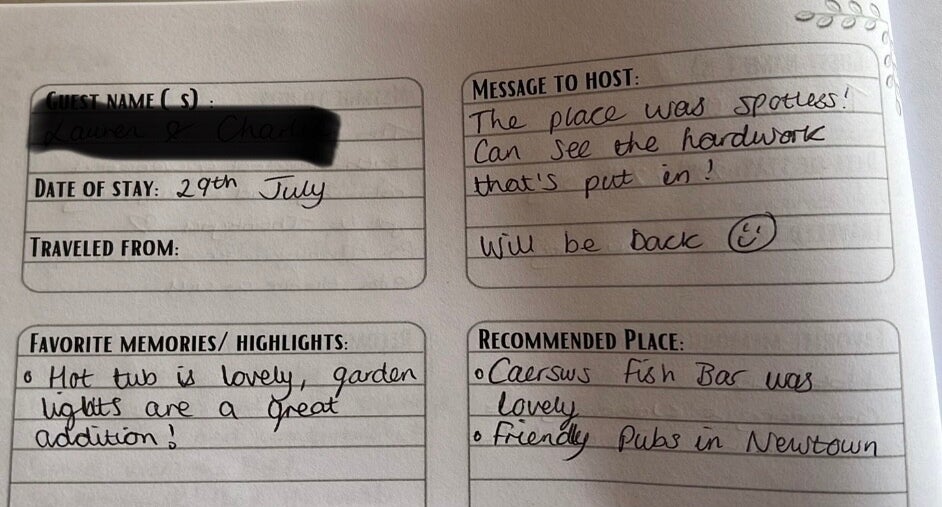 GUEST NAME( S) :
DATE OF STAY: 29th July
TRAVELED FROM:
MESSAGE TO HOST:
The place was spotless!
Can see the hardwork
that's put in!
Will be back
FAVORITE MEMORIES/ HIGHLIGHTS:
Hot tub is lovely, garden
lights are a great
addition!
RECOMMENDED PLACE:
Caersws Fish Bar was
lovely
Friendly Pubs in Newtown